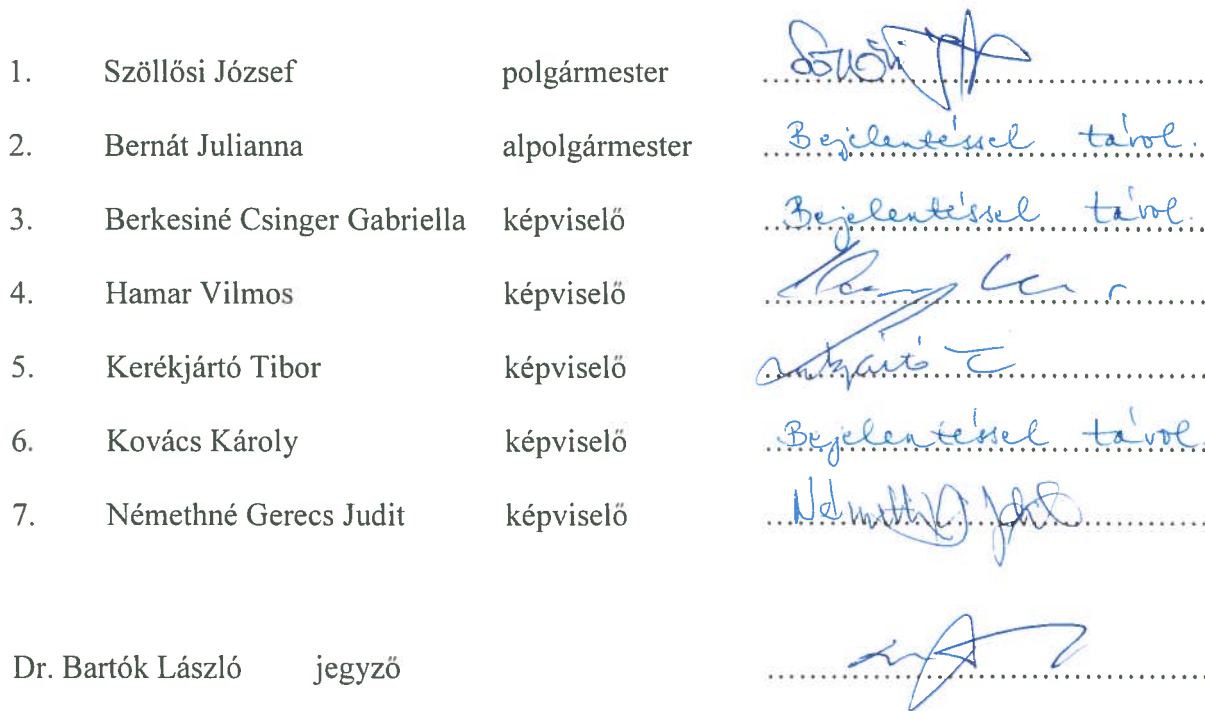 1. Szöllősi József polgármester
2. Bernát Julianna alpolgármester Bejelentéssel távol.
3. Berkesiné Csinger Gabriella képviselő Bejelentéssel távol.
4. Hamar Vilmos képviselő
5. Kerékjártó Tibor képviselő
6. Kovács Károly képviselő Bejelentéssel távol.
7. Némethné Gerecs Judit képviselő
Dr. Bartók László jegyző